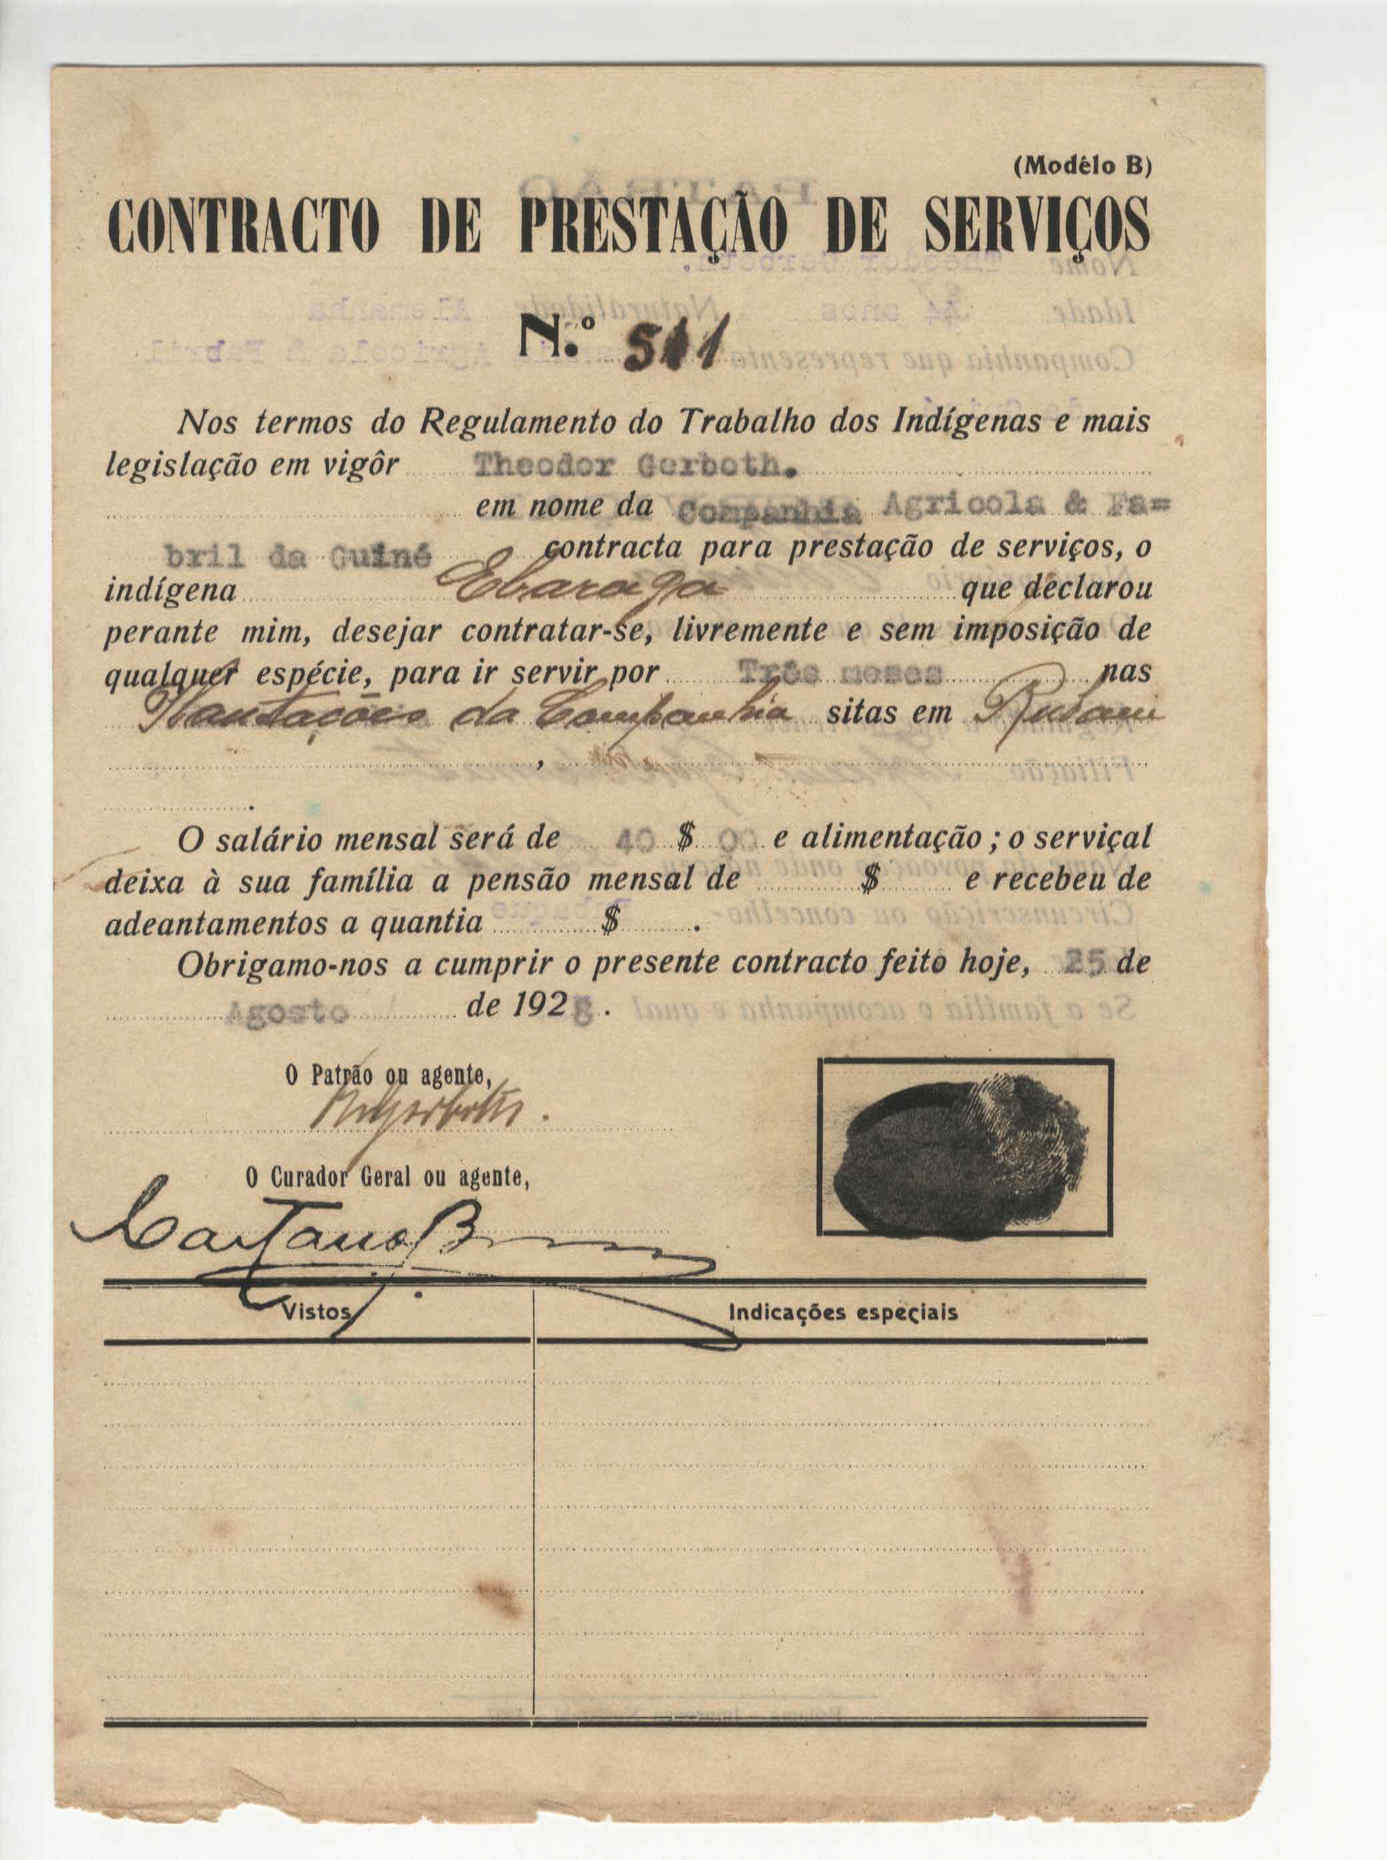 (Modêlo B)
CONTRACTO DE PRESTAÇÃO DE SERVIÇOS
N.º 511
Nos termos do Regulamento do Trabalho dos Indígenas e mais
legislação em vigôr Theodor Gerboth.
em nome da Companhia Agricola & Fa=
bril da Guiné contracta para prestação de serviços, o
indígena Ebaraga que declarou
perante mim, desejar contratar-se, livremente e sem imposição de
qualquer espécie, para ir servir por Três meses nas
Plantações da Companhia sitas em Rubane
,
.
O salário mensal será de 40 $ 00 e alimentação; o serviçal
deixa à sua família a pensão mensal de $ e recebeu de
adeantamentos a quantia $ .
Obrigamo-nos a cumprir o presente contracto feito hoje, 25 de
Agosto de 1928.
O Patrão ou agente,
O Curador Geral ou agente,
Caetano
Vistos
Indicações especiais